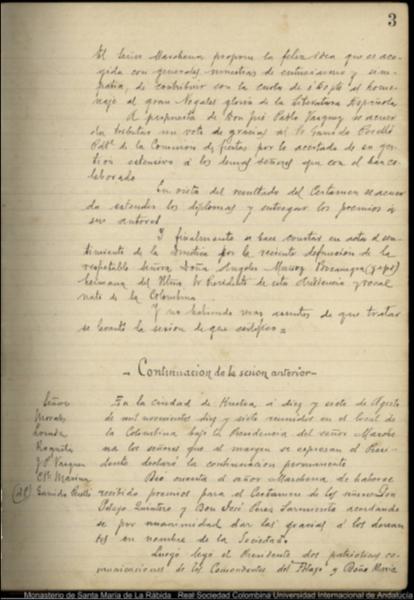 3
El Señor Marchena propone la feliz idea que es aco-
gida con generales muestras de entusiasmo y sim-
patia, de contribuir con la cuota de al home-
naje al gran Nogales gloria de la Literatura Española
A propuesta de Don José Pablo Vazquez se acuer
da tributar un voto de gracias al Sr Garrido Perelló
de la Comision de fiestas por lo acertado de su ges-
tion extensivo a los demas señores que con el han co-
laborado
En vista del resultado del Certamen se acuer
da extender los diplomas y entregar los premios á
sus autores
Y finalmente se hace constar en acta el sen-
timiento de la Directiva por la reciente defuncion de la
respetable Señora Doña Angeles Muñoz
hermana del Presidente de esta Audiencia y vocal
nato de la Colombina
Y no habiendo mas asuntos de que tratar
se levantó la sesion de que certifico =
- Continuacion de la sesion anterior -
Señores
Morales
Vazquez
Marchena
Garrido Perelló
En la ciudad de Huelva á diez y siete de Agosto
de mil novecientos diez y siete reunidos en el local de
la Colombina bajo la Presidencia del señor Marche
na los señores que al margen se expresan el Presi-
dente declaró la continuacion permanente
Dio cuenta el señor Marchena de haberse
recibido premios para el Certamen de los señores Don
Pelayo Quintero y Don José Perez Sarmiento acordando
se por unanimidad dar las gracias á los donan
tes en nombre de la Sociedad
Luego leyó el Presidente dos patrióticas co-
municaciones de los Comandantes del Pelayo y Doña Maria
Monasterio de Santa María de La Rábida Real Sociedad Colombina Universidad Internacional de Andalucía